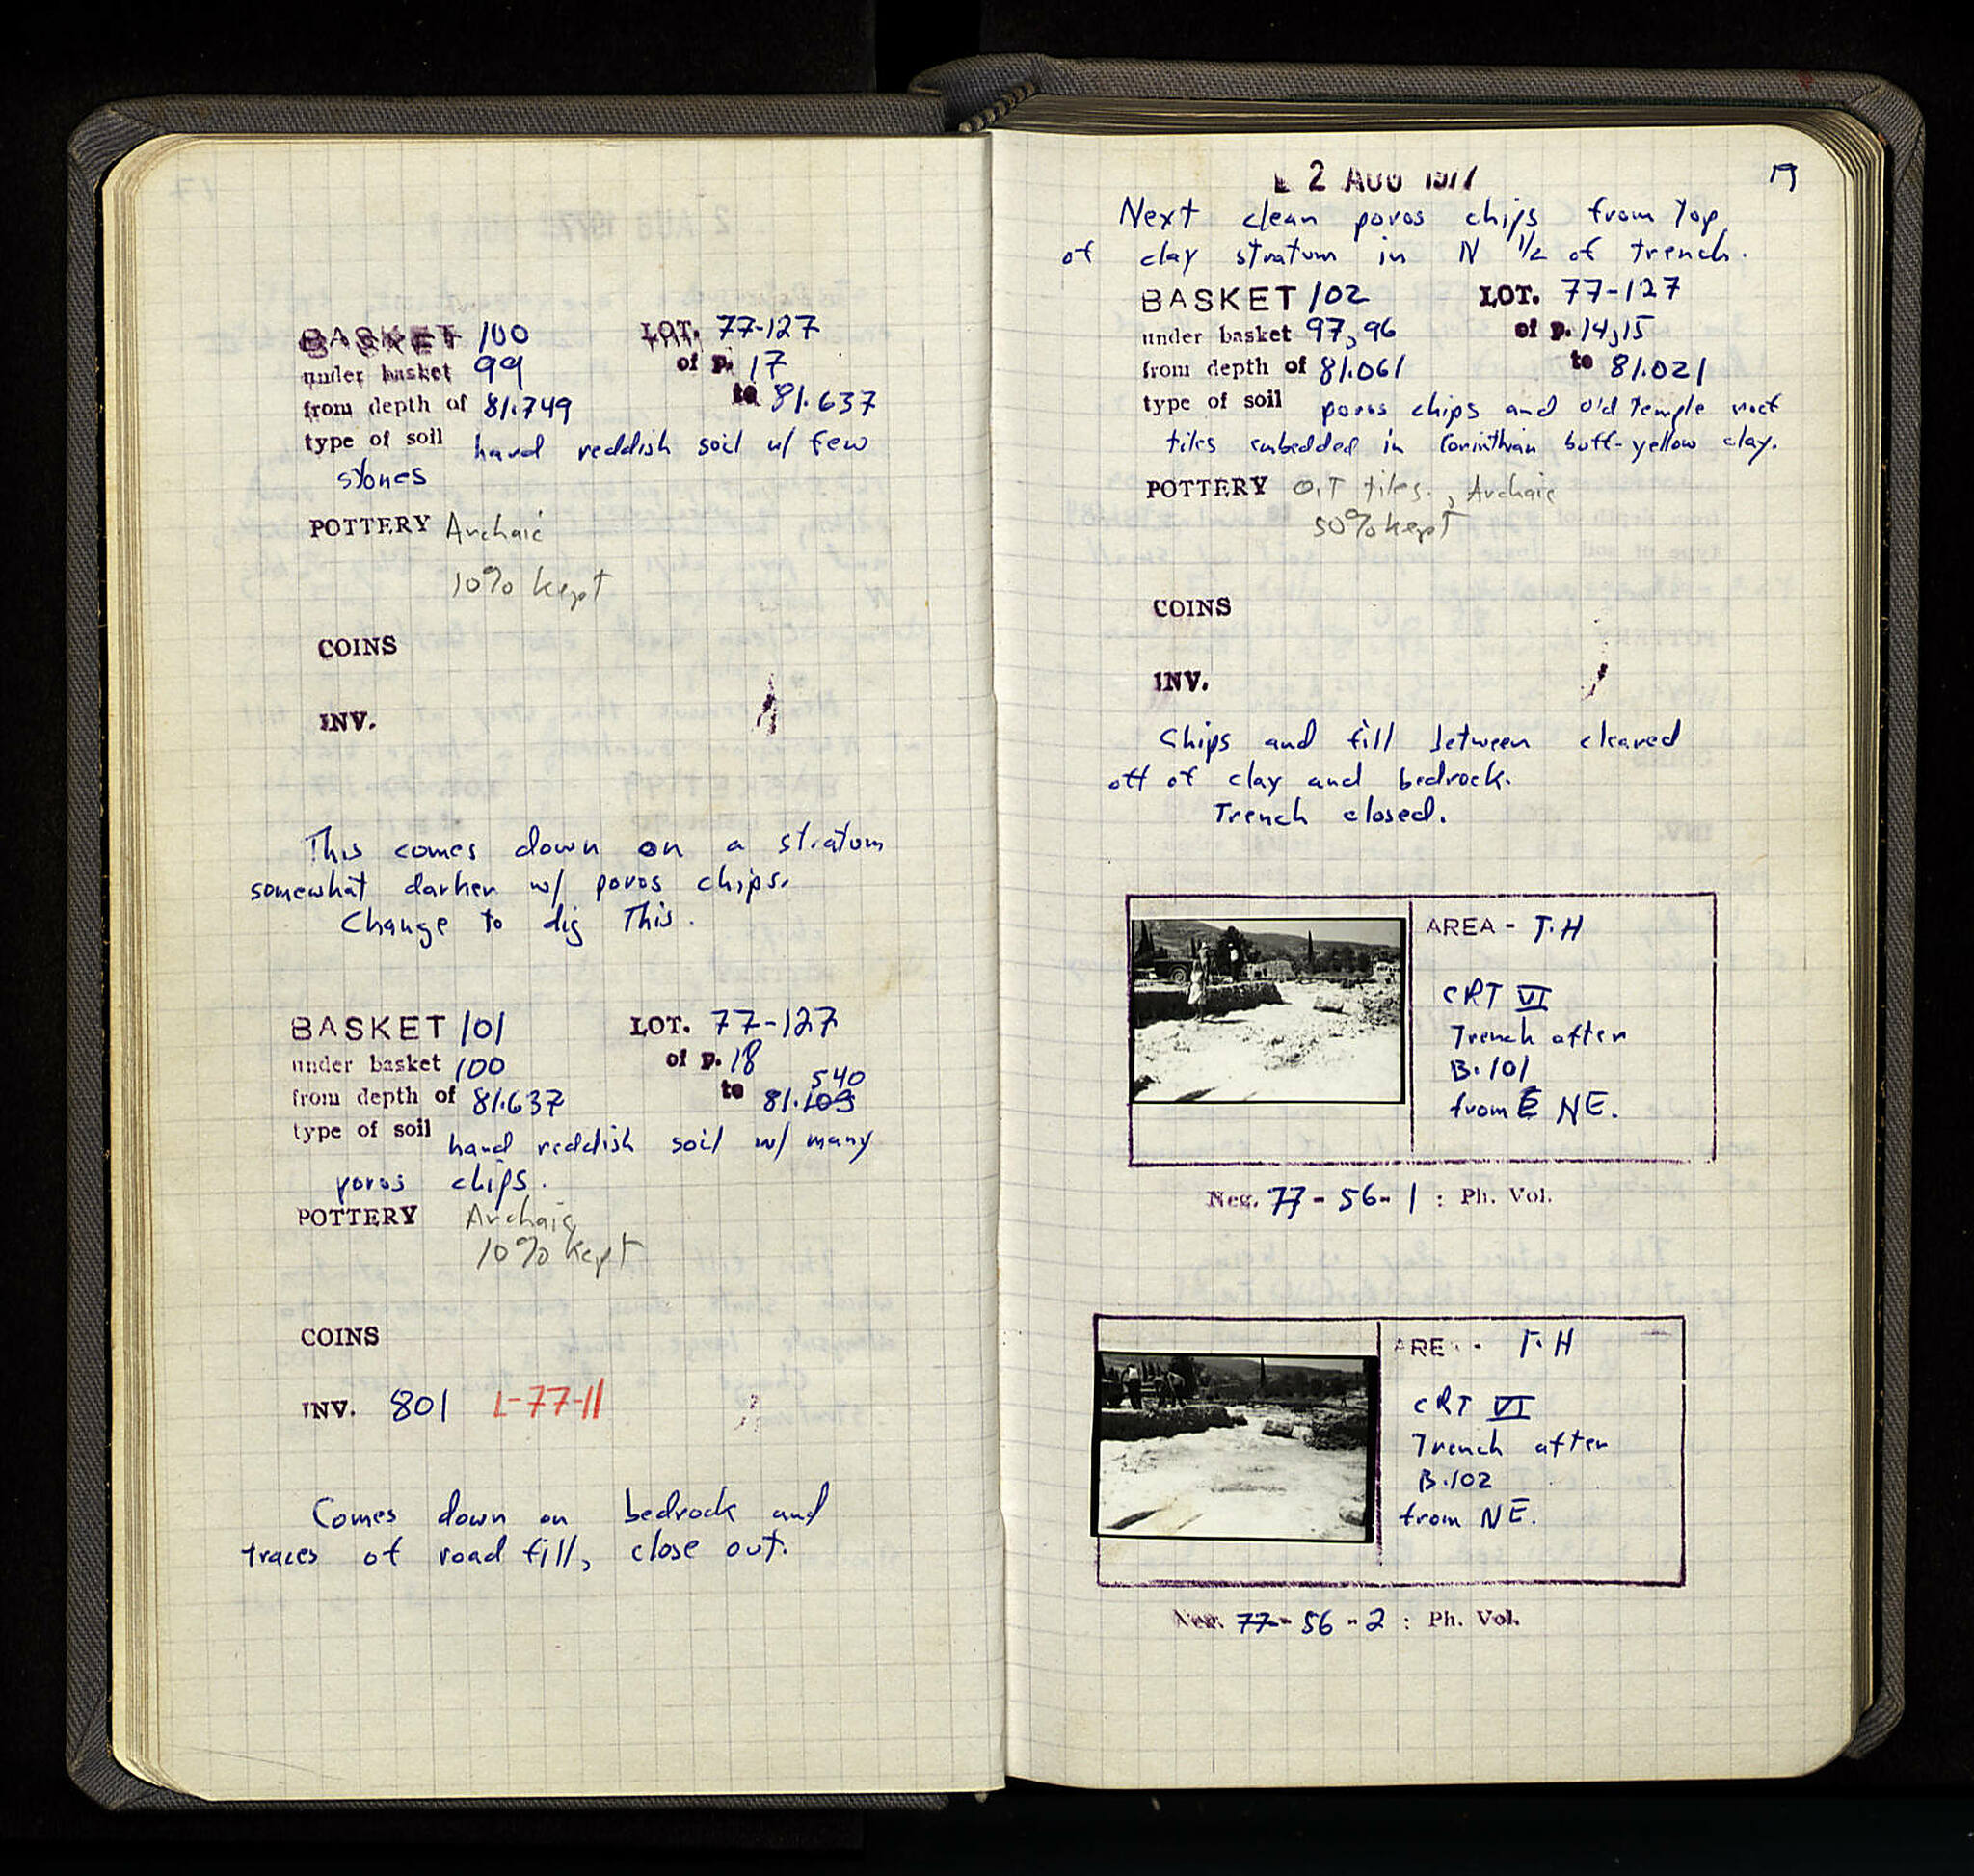 BASKET 100 LOT. 77-127
under basket 99 of p. 17
from depth of 81.749 to 81.637
type of soil hard reddish soil w/ few
stones
POTTERY Archaic
10% kept
COINS
INV.
This comes down on a stratum
somewhat darker w/ poros chips.
Change to dig This.
BASKET 101 LOT. 77-127
under basket 100 of p. 18
540
from depth of 81.637 to 81.109
type of soil hard reddish soil w/ many
poros chips.
POTTERY Archaic
10% kept
COINS
INV. 801 L-77-11
Comes down on bedrock and
traces of road fill, close out.
2 AUG 1977 19
Next clean poros chips from Top
of clay stratum in N 1/2 of trench.
BASKET 102 LOT. 77-127
under basket 97,96 of p. 14,15
from depth of 81.061 to 81.021
type of soil poros chips and old Temple roof
tiles embedded in Corinthian buff-yellow clay.
POTTERY O.T tiles., Archaic
50% kept
COINS
INV.
Chips and fill between cleared
off of clay and bedrock.
Trench closed.
AREA - T.H
CRT VI
Trench after
B.101
from E NE.
Neg. 77-56-1 : Ph. Vol.
ARE - T.H
CRT VI
Trench after
B.102
from NE.
Neg. 77-56-2 : Ph. Vol.